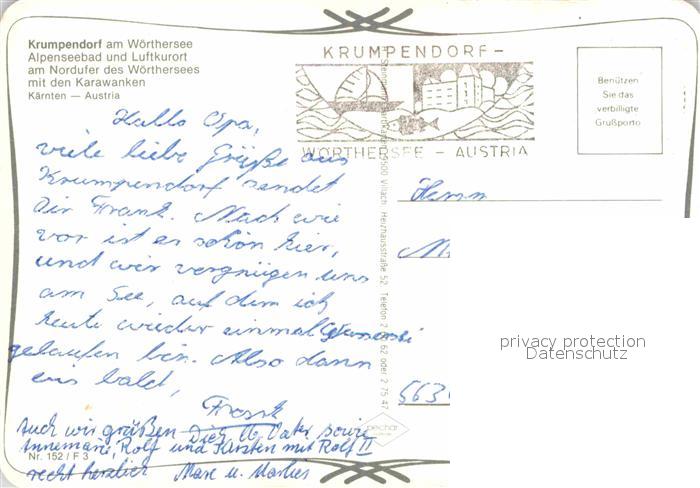 Krumpendorf am Wörthersee
Alpenseebad und Luftkurort
am Nordufer des Wörthersees
mit den Karawanken
Kärnten — Austria
KRUMPENDORF –
WÖRTHERSEE – AUSTRIA
Benützen
Sie das
verbilligte
Grußporto
Hallo Opa,
viele liebe Grüße aus
Krumpendorf sendet
Dir Frank. Nach wie
vor ist es schön hier,
und wir vergnügen uns
am See, auf dem ich
heute wieder einmal
gelaufen bin. Also dann
bis bald,
Frank
Auch wir grüßen Dich lb. Vater sowie
Annemarie, Rolf und Kirsten mit Rolf II
recht herzlich Max u. Marlies
Nr. 152 / F 3
9500 Villach, Heizhausstraße 52, Telefon
Herrn
563
privacy protection
Datenschutz